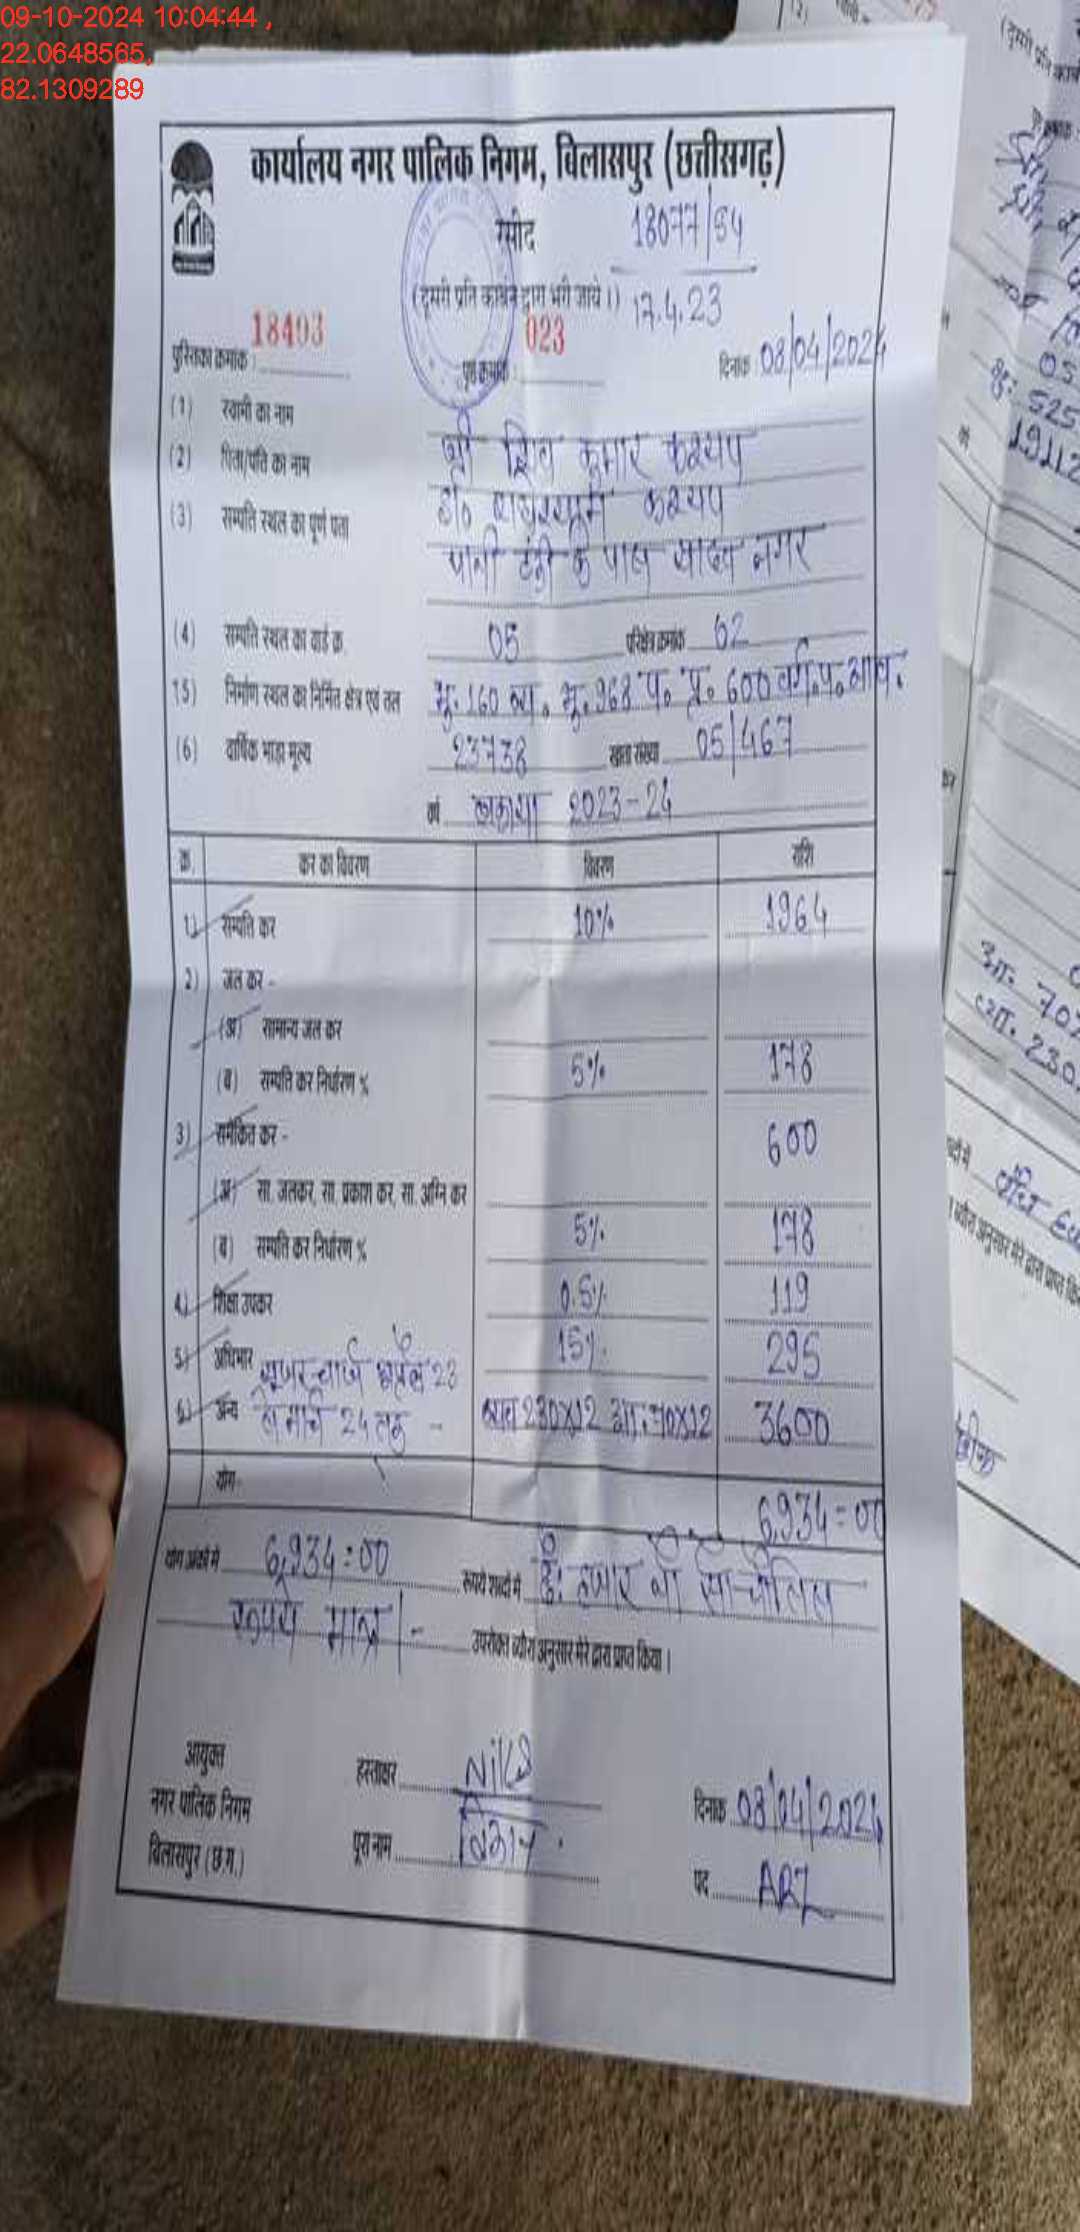 09-10-2024 10:04:44 ,
22.0648565,
82.1309289
कार्यालय नगर पालिक निगम, बिलासपुर (छत्तीसगढ़)
रसीद 18077/54
(दूसरी प्रति कार्बन द्वारा भरी जाये।) 17.4.23
पुस्तिका क्रमांक : 18493 पृष्ठ क्रमांक : 023 दिनांक 08/04/2024
(1) स्वामी का नाम श्री शिव कुमार कश्यप
(2) पिता/पति का नाम कश्यप
(3) सम्पति स्थल का पूर्ण पता पानी टंकी के पास यादव नगर
(4) सम्पति स्थल का वार्ड क्र. 05 परिक्षेत्र क्रमांक 02
(5) निर्माण स्थल का निर्मित क्षेत्र एवं तल भू. 160 व्य. भू. 968 प. प्र. 600 वर्ग.फ. आव.
(6) वार्षिक भाड़ा मूल्य 23738 खाता संख्या 05/467
वर्ष बकाया 2023-24
क्र. कर का विवरण विवरण राशि
1) सम्पति कर 10% 1964
2) जल कर -
(अ) सामान्य जल कर
(ब) सम्पति कर निर्धारण % 5% 178
3) समेकित कर - 600
(अ) सा. जलकर, सा. प्रकाश कर, सा. अग्नि कर
(ब) सम्पति कर निर्धारण % 5% 178
4) शिक्षा उपकर 0.5% 119
5) अधिभार यूजर चार्ज अप्रैल 23 15% 295
6) अन्य से मार्च 24 तक - व्याव 230x12 आ. 70x12 3600
योग- 6,934=00
योग अंकों में 6,934=00 रूपये शब्दों में छः हजार नौ सौ चौंतिस
रूपये मात्र/- उपरोक्त ब्यौरा अनुसार मेरे द्वारा प्राप्त किया।
आयुक्त
नगर पालिक निगम
बिलासपुर (छ.ग.)
हस्ताक्षर
दिनांक 08/04/2024
पूरा नाम
पद ARI